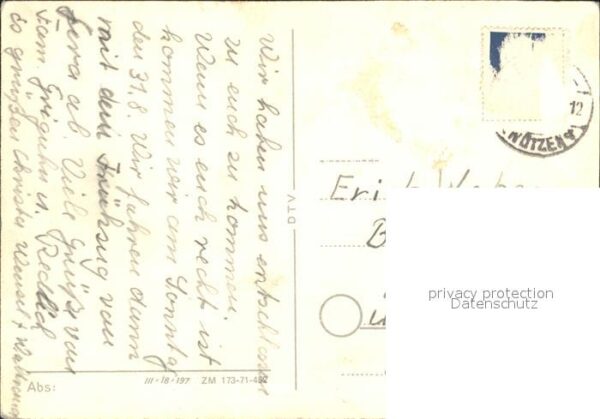 Wir haben uns entschlossen
zu euch zu kommen.
Wenn es euch recht ist
kommen wir am Sonntag
den 31.8. Wir fahren dann
mit dem Frühzug von
Gera ab. Viele Grüße von
Fam. u. Redlich
es grüßen Christa
DTV
Erich
B
privacy protection
Datenschutz
12
Abs:
III-18-197 ZM 173-71-452